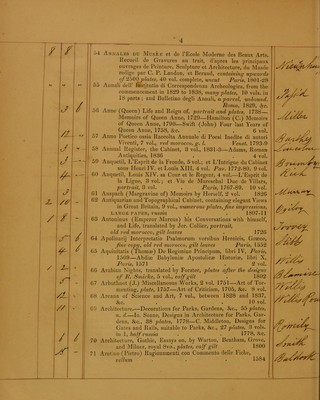 4
8 8 -
54 Annales du Musée et de l'Ecole Moderne des Beaux Arts,
Recueil de Gravures au trait, d'apres les principaux
ouvrages de Peinture, Sculpture et Architecture, du Musée
redigé par C. P. Landon, et Beraud, containing upwards
of 2500 plates, 40 vol. complete, uncut Paris, 1801-28
55 Annali dell' Instituto di Correspondenza Archeologica, from the
commencement in 1829 to 1838, many plates, 10 vols. in
16 parts; and Bulletino degli Annali, a parcel, unbound
Rome, 1829, &c.
3 6
56 Anne (Queen) Life and Reign of, portrait and plates, 1738—
Memoirs of Queen Anne, 1729—Hamilton (C.) Memoirs
of Queen Anne, 1790—Swift (John) Four last Years of
Queen Anne, 1758, &c. 6 vol.
Miller
12 -
57 Anno Poetico ossia Raccolta Annuale di Poesi Inedite di autori
Viventi, 7 vol. red morocco, g. l. Venet. 1793-9
3 -
58 Annual Register, the Cabinet, 3 vol. 1831-3—Adams, Roman
Antiquities, 1830 4 vol.
3 -
59 Anquetil, L'Esprit de la Fronde, 5 vol.; et L'Intrigue du Cabinet
sous Henri IV. et Louis XIII, 4 vol. Par. 1772-80, 9 vol.
4 -
60 Anquetil, Louis XIV. sa Cour et le Regent, 4 vol.—L'Esprit de
la Ligue, 3 vol.; et Vie de Mareschal Duc de Villars,
portrait, 3 vol. Paris, 1767-89, 10 vol.
Rich
3 -
61 Anspach (Margravine of) Memoirs by Herself, 2 vol. 1826
Murray
2 10 -
62 Antiquarian and Topographical Cabinet, containing elegant Views
in Great Britain, 9 vol., numerous plates, fine impressions,
LARGE PAPER, russia 1807-11
Ogilvy
1 8 -
63 Antoninus (Emperor Marcus) his Conversations with himself,
and Life, translated by Jer. Collier, portrait,
old red morocco, gilt leaves 1726
Toovey
5 6
64 Apolinarij Interpretatio Psalmorum versibus Heroicis, Græce,
fine copy, old red morocco, gilt leaves Paris, 1552
4 6
65 Aquinitatis (Thomæ) De Regimine Principum, Libri IV. Paris,
1509—Abdiæ Babyloniæ Apostolica Historia, libri X,
Paris, 1571 2 vol.
- 2 -
66 Arabian Nights, translated by Forster, plates after the designs
of R. Smirke, 5 vol., calf gilt 1802
Willis
5 -
67 Arbuthnot (J.) Miscellaneous Works, 2 vol. 1751—Art of Tormenting,
plate, 1757—Art of Criticism, 1705, &c. 8 vol.
12 -
68 Arcana of Science and Art, 7 vol., between 1828 and 1837,
&c. 10 vol.
Willis
11 -
69 Architecture—Decorations for Parks, Gardens, &c., 55 plates,
n. d—Is. Soane, Designs in Architecture for Parks, Gardens,
&c., 38 plates, 1778—C. Middleton, Designs for
Gates and Rails, suitable to Parks, &c., 27 plates, 3 vols.
in 1, half russia 1778, &c.
6 -
70 Architecture, Gothic, Essays on, by Warton, Bentham, Grove,
and Milner, royal 8vo., plates, calf gilt 1800
Smith
15 -
71 Aretino (Pietro) Ragionamenti con Commento delle Fiche,
vellum 1584